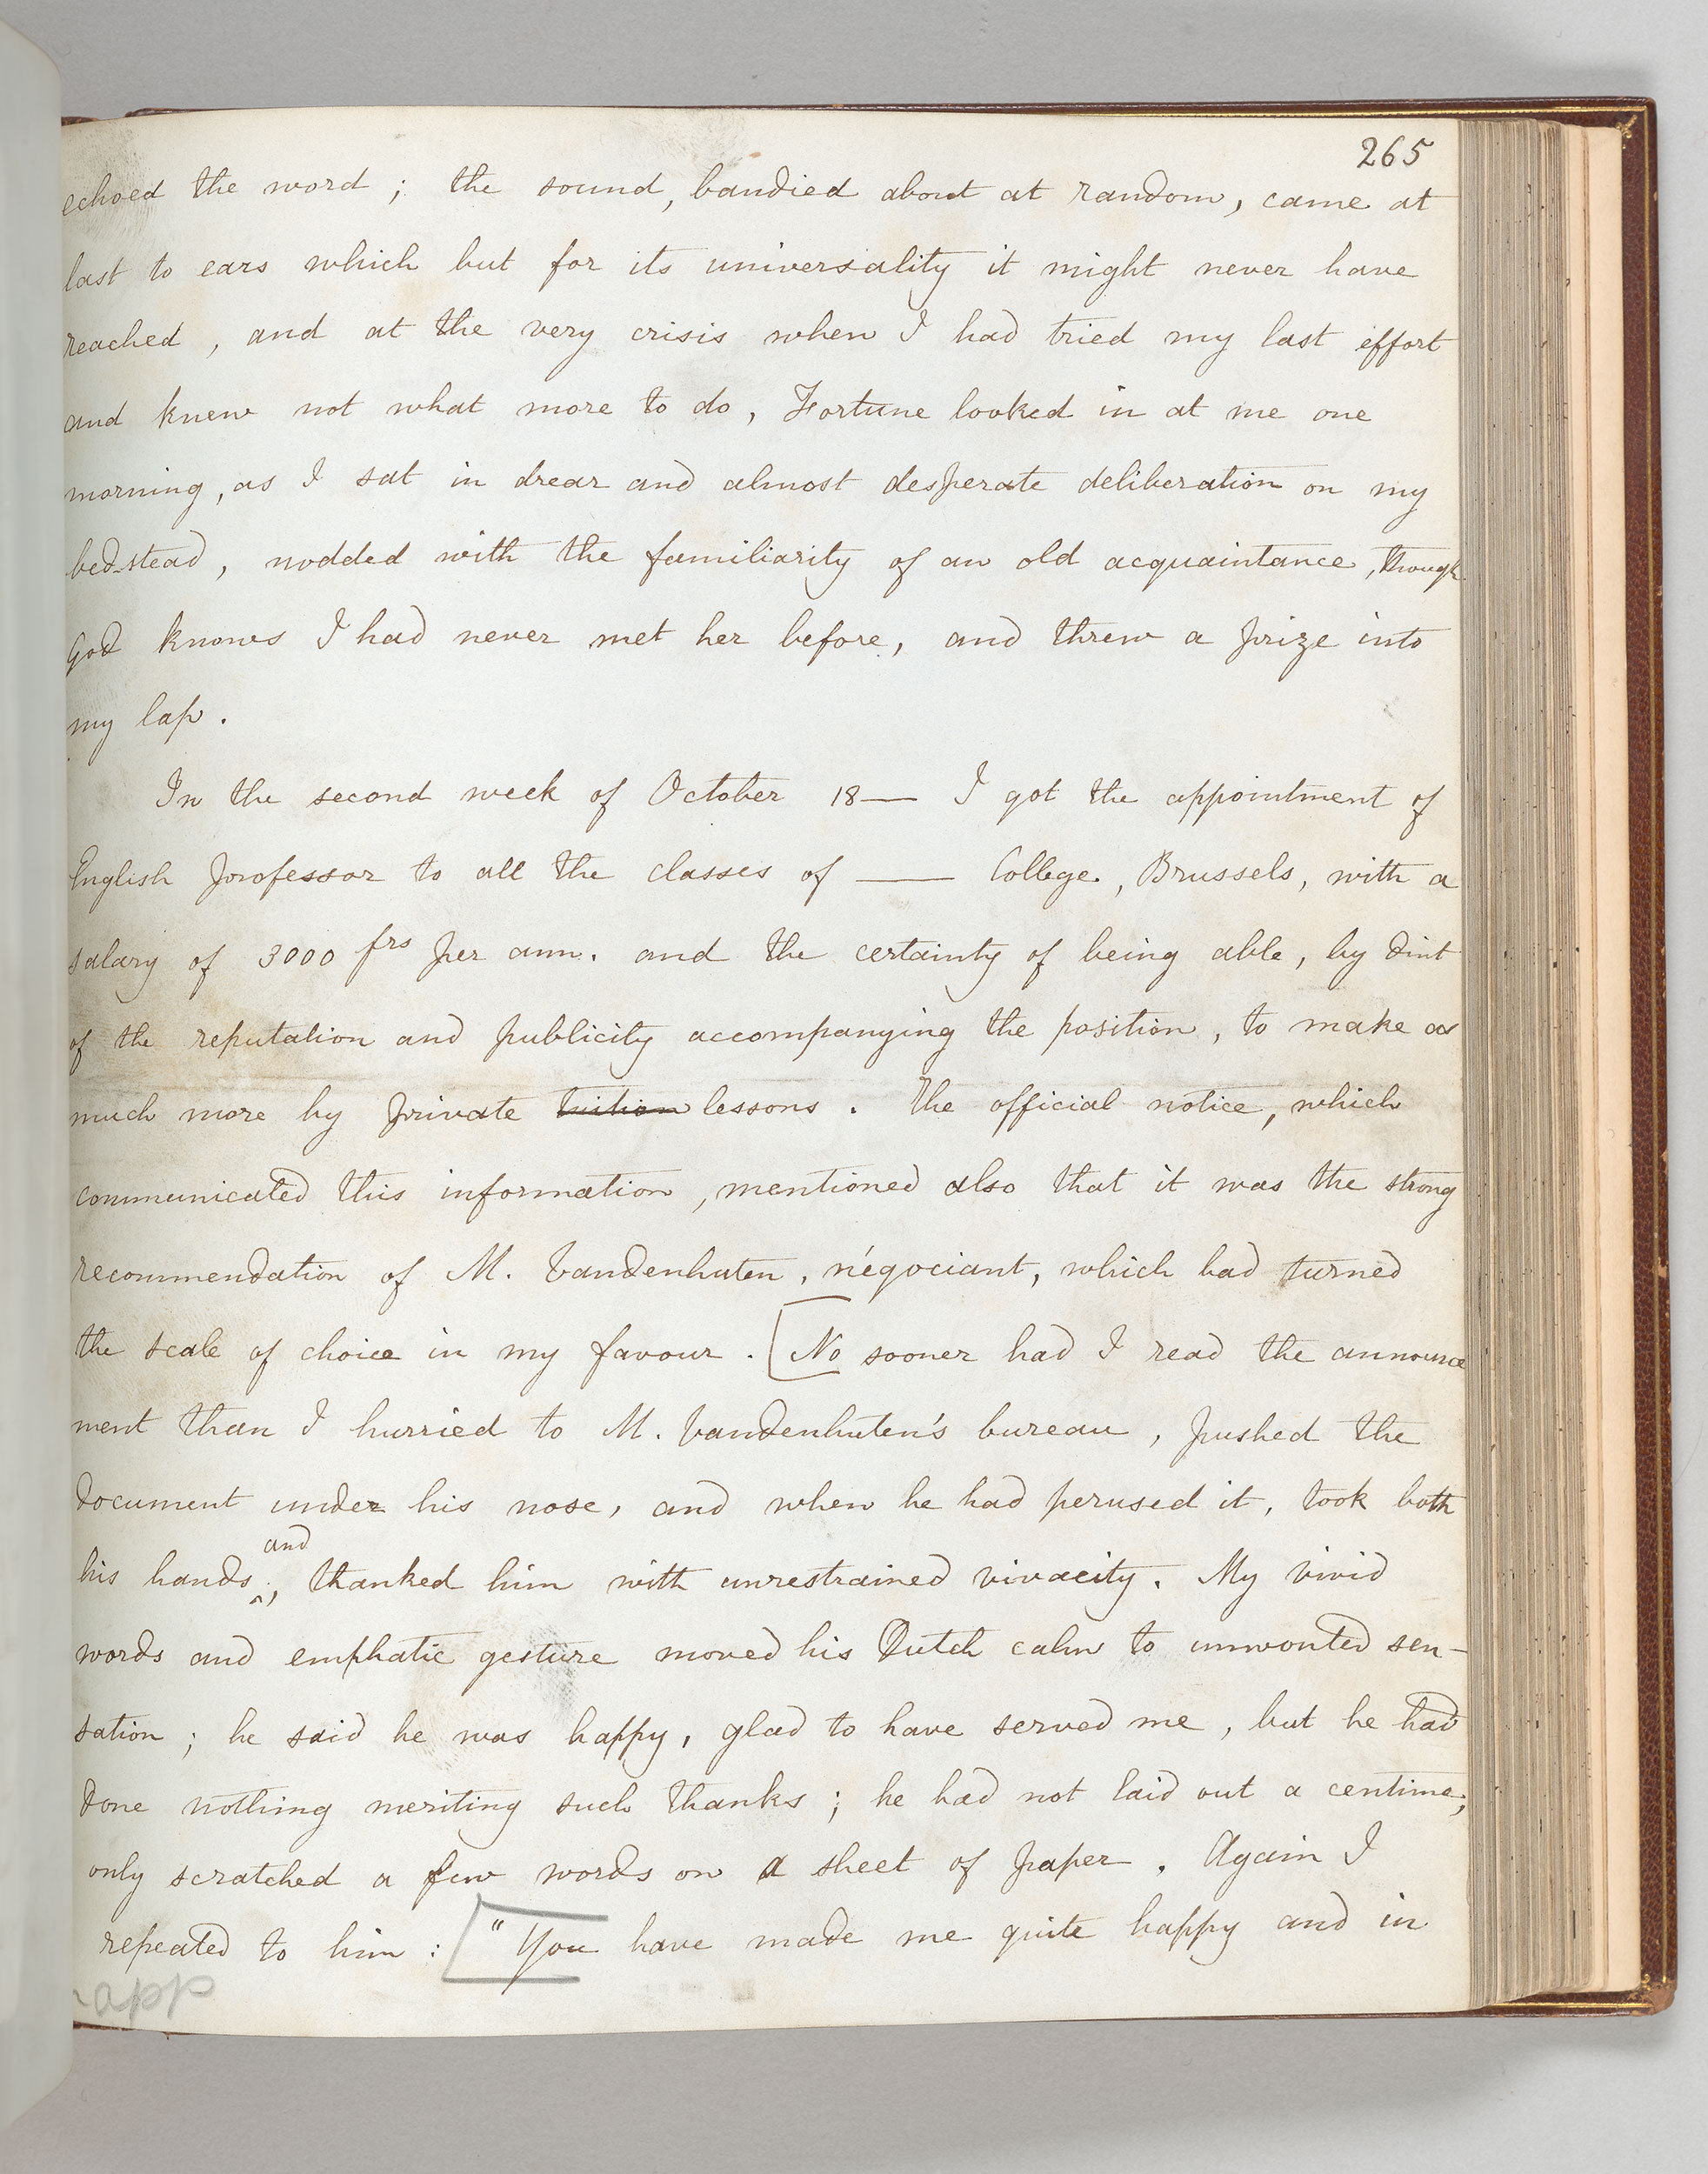 265
echoed the word ; the sound, bandied about at random, came at
last to ears which but for its universality it might never have
reached , and at the very crisis when I had tried my last effort
and knew not what more to do, Fortune looked in at me one
morning, as I sat in drear and almost desperate deliberation on my
bed-stead, nodded with the familiarity of an old acquaintance, though
God knows I had never met her before, and threw a prize into
my lap.
In the second week of October 18— I got the appointment of
English professor to all the classes of —— College, Brussels, with a
salary of 3000 frs per ann. and the certainty of being able, by dint
of the reputation and publicity accompanying the position, to make as
much more by private tuition lessons. The official notice, which
communicated this information, mentioned also that it was the strong
recommendation of M. Vandenhuten, négociant, which had turned
the scale of choice in my favour. [No sooner had I read the announce
ment than I hurried to M. Vandenhuten's bureau, pushed the
document under his nose, and when he had perused it, took both
and
his hands^, thanked him with unrestrained vivacity. My vivid
words and emphatic gesture moved his Dutch calm to unwonted sen-
sation ; he said he was happy, glad to have served me, but he had
done nothing meriting such thanks ; he had not laid out a centime;
only scratched a few words on a sheet of paper. Again I
repeated to him : [“You have made me quite happy and in